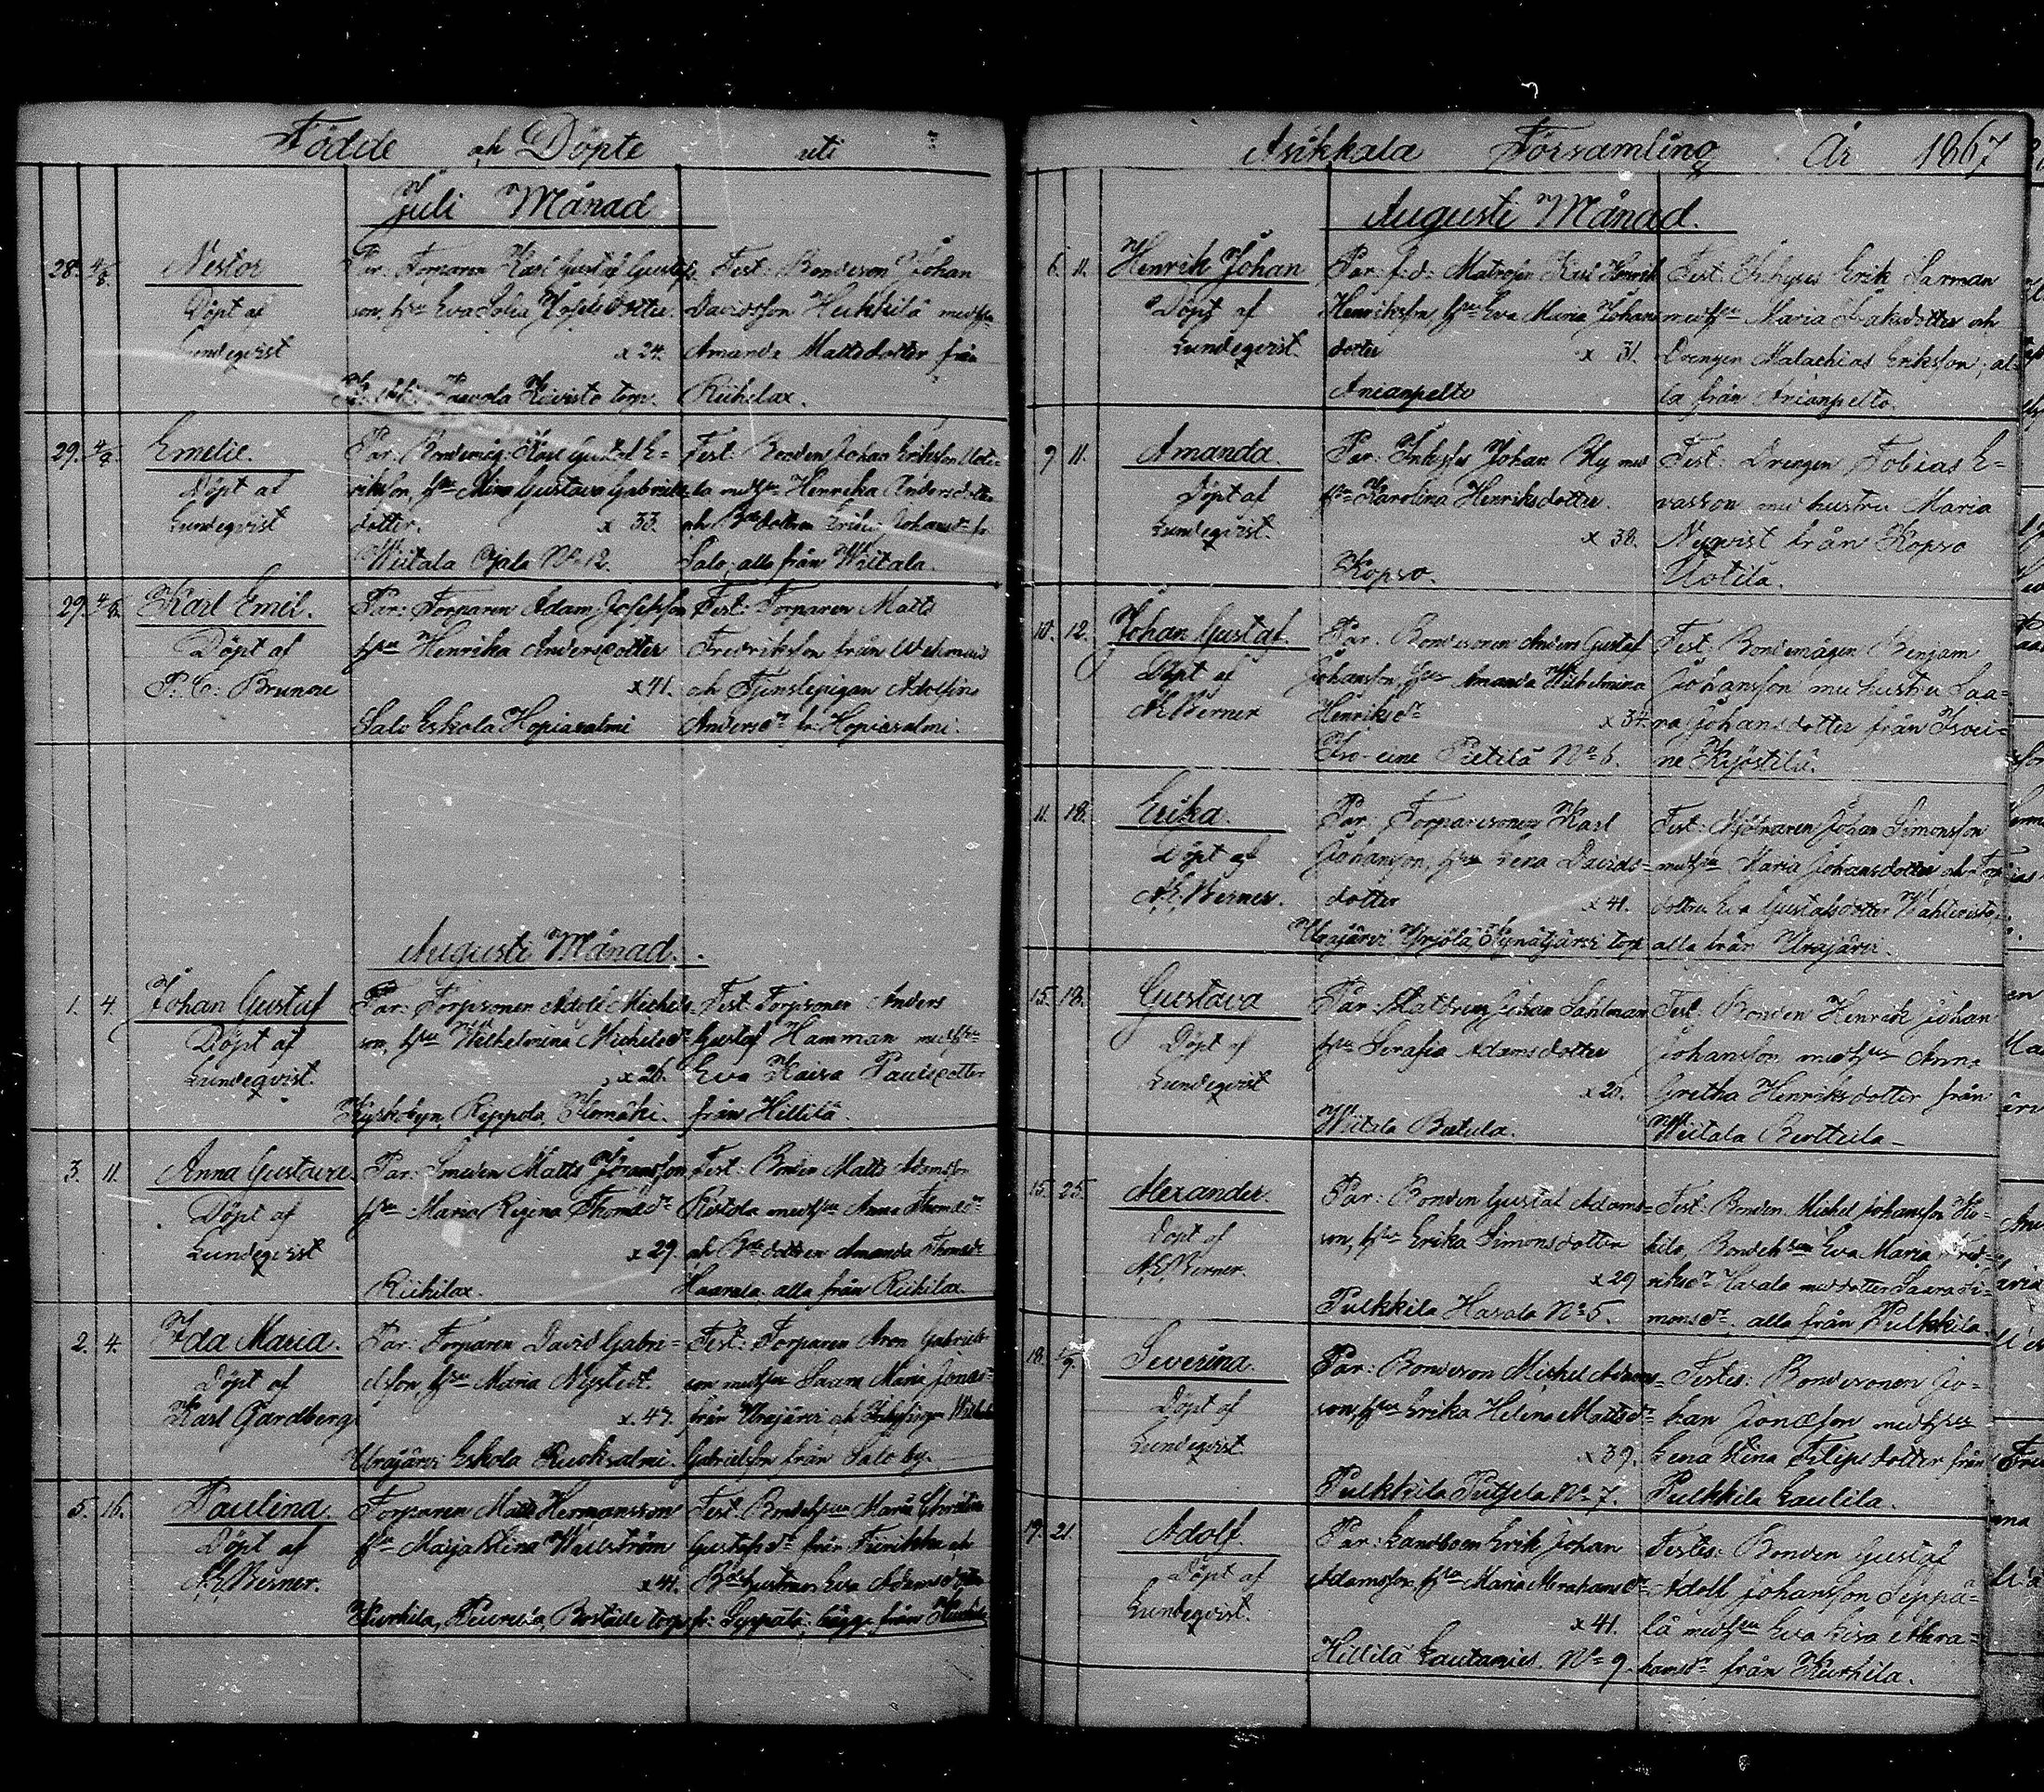 Födde och Döpte uti
Juli Månad
28. 4/8. Nestor
Döpt af
Lundeqvist
Par: Torparen Karl Gustaf Gustafs-
son, hu Eva Josefsdotter
x 24.
Paavola Kivistö torp.
Test: Bondeson Johan
Davidsson Heikkilä med hu
Amanda Mattsdotter från
Riihelax.
29. 4/8. Emelie.
Döpt af
Lundeqvist
Par: Bondemåg: Karl Gustaf E=
riksson, hu Mina Gustava Gabriels
dotter. x 33.
Wiitala Ojala No 12.
Test: Bonden Johan Eriksson Uoti-
la med hu Henrika Andersdotter
och Bdedottren Johansdr fr
Salo, alla från Wiitala.
29. 4/8. Karl Emil.
Döpt af
P. C: Brunow
Par: Torparen Adam Josefsson
hu Henrika Andersdotter
x 41.
Salo Eskola Hopiasalmi
Test: Torparen Matts
Fredriksson från
och Tjenstepigan Adolfina
Andersdr fr. Hopiasalmi.
Augusti Månad.
1. 4. Johan Gustaf
Döpt af
Lundeqvist.
Par: Torpsonen Adolf Michels-
son, hu Wilhelmina Michelsdr
x 26.
Reppola,
Test: Torpsonen Anders
Gustaf Hamman med hu
Eva Kaisa Paulsdotter
från Hillilä.
3. 11. Anna Gustava.
Döpt af
Lundeqvist
Par: Smeden Matts Johansson
hu Maria Regina Thomasdr
x 29.
Riihilax.
Test: Bonden Matts Adamsson
Ristola med hu Anna Thomasdr
och Bdedottren Amanda Thomasdr
Haarala, alla från Riihilax.
2. 4. Ida Maria.
Döpt af
Karl Gardberg
Par: Torparen David Gabri=
elsson, hu Maria Nystedt.
x 47.
Urajärvi Eskola Ruoksalmi.
Test: Torparen Aron Gabriels-
son med hu Saara Maria Jonasdr
från Urajärvi och
Gabrielsson från Salo by.
5. 16. Paulina.
Döpt af
A. E. Berner.
Torparen Matts Hermansson
hu Maja Stina Wallström
x 41.
Kurhila, torp
Test: Bondehu Maria Christina
Gustafsdr från och
Bdehustrun Eva Adamsdotter
fr. Seppälä; bägge från Kurhila
Asikkala Församling År 1867
Augusti Månad.
6. 11. Henrik Johan
Döpt af
Lundeqvist.
Par: f: d: Matrosen Karl Henrik
Henriksson, hu Eva Maria Johans
dotter x 31.
Anianpelto
Test: Inhyses Erik Sarman
med hu Maria Isaksdotter och
Drengen Malachias Eriksson, al=
la från Anianpelto.
9 11. Amanda.
Döpt af
Lundeqvist.
Par: Inhyses Johan Bly med
hu Karolina Henriksdotter.
x 38.
Kopso.
Test: Drengen Tobias E=
vasson med hustru Maria
Nyqvist från Kopso
Uotila.
10. 12. Johan Gustaf.
Döpt af
A E Berner
Par: Bondesonen Anders Gustaf
Johansson, hu Amanda Wilhelmina
Henriksdr x 34.
Iso-eine Pietilä No 6.
Test: Bondemågen Benjam
Johansson med hustru Saa=
ra Johansdotter från Isoei=
ne Kyöstilä.
11. 18. Erika.
Döpt af
A. E. Berner.
Par: Torparesonen Karl
Johansson, hu Lena Davids=
dotter x 41.
Urajärvi Yrjölä, torp
Test: Mjölnaren Johan Simonsson
med hu Maria Johansdotter och Torp
dottren Eva Gustafsdotter
alla från Urajärvi.
15. 18. Gustava
Döpt af
Lundeqvist
Par: Johan Sahlman
hu Serafia Adamsdotter
x 20.
Wiitala
Test: Bonden Henrik Johan
Johansson med hu Anna
Gretha Henriksdotter från
Wiitala Berttula-
15. 25. Alexander.
Döpt af
A. E. Berner.
Par: Bonden Gustaf Adams=
son, hu Erika Simonsdotter
x 29
Pulkkila Hasala No 5.
Test: Bonden Michel Johansson
Bondehu Eva Maria Fred=
riksdr Hasala med dotter Saara Si-
monsdr, alla från Pulkkila.
18. 1/9. Severina.
Döpt af
Lundeqvist.
Par: Bondeson Michel Adams=
son, hu Erika Helena Mattsdr
x 39.
Pulkkila No 7.
Testes: Bondesonen Jo-
han Jonasson med hu
Lena Stina Filipsdotter från
Pulkkila Laulila.
19. 21. Adolf.
Döpt af
Lundeqvist.
Par: Landboen Erik Johan
Adamsson, hu Maria Abrahamsdr
x 41.
Hillilä Lautamies. No 9.
Testes: Bonden Gustaf
Adolf Johansson Seppä=
lä med hu Eva Lisa Abra=
hamsdr från Kurhila.